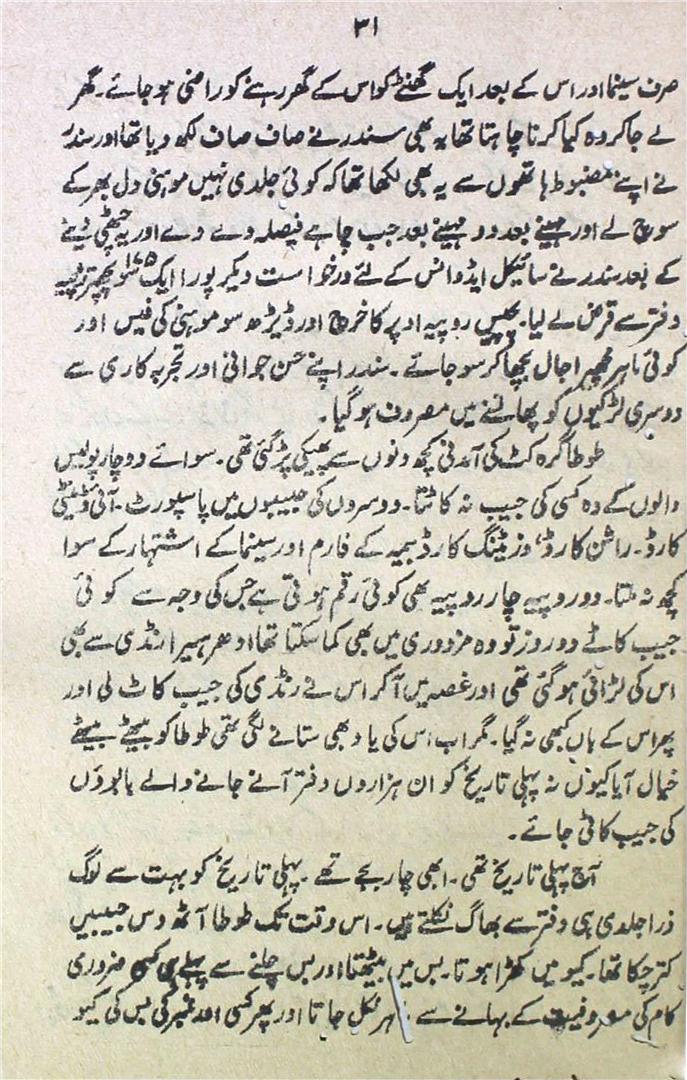 ۳۱
صرف سینما اور اس کے بعد ایک گھنٹے کو اس کے گھر رہنے کو راضی ہو جائے۔ گھر
لے جا کر وہ کیا کرنا چاہتا تھا یہ بھی سندر نے صاف صاف لکھ دیا تھا اور سندر
نے اپنے مضبوط ہاتھوں سے یہ بھی لکھا تھا کہ کوئی جلدی نہیں موہنی دل بھر کے
سوچ لے اور مہینے بعد دو مہینے بعد جب چاہے فیصلہ دے دے اور یہ چٹھی دینے
کے بعد سندر نے سائیکل ایڈوانس کے لئے درخواست دیکر پورا ایک سو پچھتر ۱۷۵ روپیہ
دفتر سے قرض لے لیا۔ پچیس روپیہ اوپر کا خرچ اور ڈیڑھ سو موہنی کی فیس اور
کوئی ماہر مچھیرا جال بچھا کر سو جائے۔ سندر اپنے حسن جوانی اور تجربہ کاری سے
دوسری لڑکیوں کو پھانسنے میں مصروف ہو گیا۔
طوطا گرہ کٹ کی آمدنی کچھ دنوں سے پھیکی پڑ گئی تھی۔ سوائے دو چار پولیس
والوں کے وہ کسی کی جیب نہ کاٹتا۔ دوسروں کی جیبوں میں پاسپورٹ۔ آئی ڈنٹیٹی
کارڈ۔ راشن کارڈ، وزیٹنگ کارڈ بیمہ کے فارم اور سینما کے اشتہار کے سوا
کچھ نہ ملتا۔ دو روپیہ چار روپیہ بھی کوئی رقم ہوتی ہے جس کی وجہ سے کوئی
جیب کاٹے دو روز تو وہ مزدوری میں بھی کما سکتا تھا ادھر ہیرا رنڈی سے بھی
اس کی لڑائی ہو گئی تھی اور غصہ میں آکر اس نے رنڈی کی جیب کاٹ لی اور
پھر اس کے ہاں کبھی نہ گیا۔ مگر اب اس کی یاد بھی ستانے لگی تھی طوطا کو بیٹھے بیٹھے
خیال آیا کیوں نہ پہلی تاریخ کو ان ہزاروں دفتر آنے جانے والے بابوؤں
کی جیب کاٹی جائے۔
آج پہلی تاریخ تھی۔ ابھی چار بجے تھے۔ پہلی تاریخ کو بہت سے لوگ
ذرا جلدی ہی دفتر سے بھاگ نکلتے ہیں۔ اس وقت تک طوطا آٹھ دس جیبیں
کتر چکا تھا۔ کیو میں کھڑا ہوتا۔ بس میں بیٹھتا اور بس چلنے سے پہلے ہی کسی ضروری
کام کی مصروفیت کے بہانے سے باہر نکل جاتا اور پھر کسی اور نمبر کی بس کی کیو